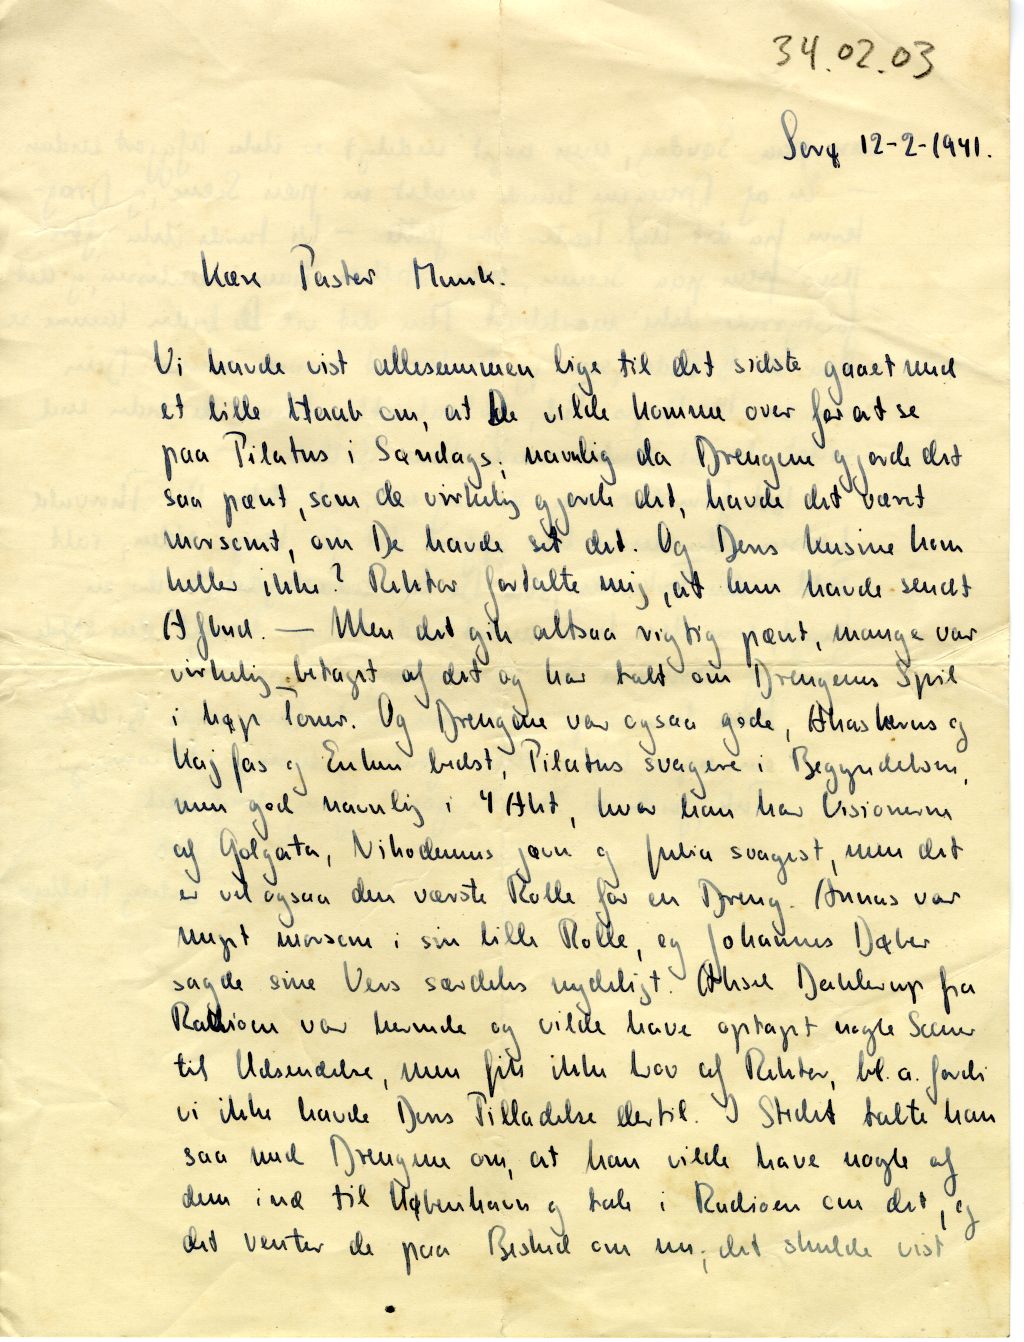 34.02.03
Sorø 12-2-1941.
Kære Pastor Munk.
Vi havde vist allesammen lige til det sidste gaaet med
et lille Haab om, at De vilde komme over for at se
paa Pilatus i Søndags; navnlig da Drengene gjorde det
saa pænt, som de virkelig gjorde det, havde det været
morsomt, om De havde set det. Og Deres Kusine kom
heller ikke? Rektor fortalte mig, at hun havde sendt
Afbud. — Men det gik altsaa rigtig pænt, mange var
virkelig betaget af det og har talt om Drengenes Spil
i høje Toner. Og Drengene var ogsaa gode, Ahasverus og
Kajfas og Enken bedst, Pilatus svagere i Begyndelsen,
men god navnlig i 4 Akt, hvor han har Visionerne
af Golgata, Nikodemus jævn og Julia svagest, men det
er vel ogsaa den værste Rolle for en Dreng. Annas var
meget morsom i sin lille Rolle, og Johannes Døber
sagde sine Vers særdeles nydeligt. Aksel Dahlerup fra
Radioen var hernede og vilde have optaget nogle Scener
til Udsendelse, men fik ikke Lov af Rektor, bl.a. fordi
vi ikke havde Deres Tilladelse dertil. I Stedet talte han
saa med Drengene om, at han vilde have nogle af
dem ind til København og tale i Radioen om det, og
det venter de paa Besked om nu; det skulde vist